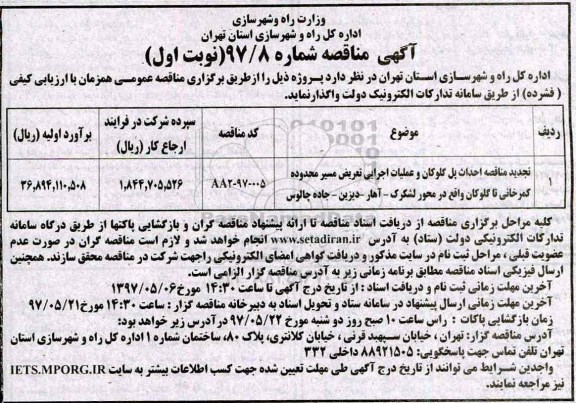 وزارت راه وشهرسازی
اداره کل راه و شهرسازی استان تهران
آگهی مناقصه شماره ۹۷/۸(نوبت اول)
اداره کل راه و شهرسازی استان تهران در نظر دارد پروژه ذیل را ازطریق برگزاری مناقصه عمومی همزمان با ارزیابی کیفی
( فشرده) از طریق سامانه تدارکات الکترونیک دولت واگذارنماید.
ردیف موضوع کد مناقصه سپرده شرکت در فرایند ارجاع کار (ریال) برآورد اولیه (ریال)
۱ تجدید مناقصه احداث پل گلوکان و عملیات اجرایی تعریض مسیر محدوده کمرخانی تا گلوکان واقع در محور لشگرک - آهار -دیزین - جاده چالوس AA۲-۹۷-۰۰۵ ۱,۸۴۴,۷۰۵,۵۲۶ ۳۶,۸۹۴,۱۱۰,۵۰۸
کلیه مراحل برگزاری مناقصه از دریافت اسناد مناقصه تا ارائه پیشنهاد مناقصه گران و بازگشایی پاکتها از طریق درگاه سامانه
تدارکات الکترونیکی دولت (ستاد) به آدرس www.setadiran.ir انجام خواهد شد و لازم است مناقصه گران در صورت عدم
عضویت قبلی ، مراحل ثبت نام در سایت مذکور و دریافت گواهی امضای الکترونیکی راجهت شرکت در مناقصه محقق سازند. همچنین
ارسال فیزیکی اسناد مناقصه مطابق برنامه زمانی زیر به آدرس مناقصه گزار الزامی است.
آخرین مهلت زمانی ثبت نام و دریافت اسناد : از تاریخ درج آگهی تا ساعت ۱۴:۳۰ مورخ۱۳۹۷/۰۵/۰۶
آخرین مهلت زمانی ارسال پیشنهاد در سامانه ستاد و تحویل اسناد به دبیرخانه مناقصه گزار : ساعت ۱۴:۳۰ مورخ۹۷/۰۵/۲۱
زمان بازگشایی پاکات : راس ساعت ۱۰ صبح روز دو شنبه مورخ ۹۷/۰۵/۲۲ درآدرس زیر خواهد بود:
آدرس مناقصه گزار: تهران ، خیابان سپهبد قرنی ، خیابان کلانتری، پلاک ۸۰، ساختمان شماره ۱ اداره کل راه و شهرسازی استان
تهران تلفن تماس جهت پاسخگویی: ۸۸۹۲۱۵۰۵ داخلی ۳۳۲
واجدین شرایط می توانند از تاریخ درج آگهی طی مهلت تعیین شده جهت کسب اطلاعات بیشتر به سایت IETS.MPORG.IR
نیز مراجعه نمایند.